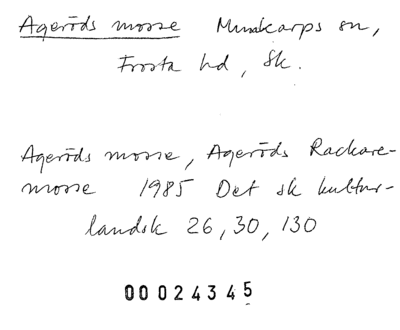 Ageröds mosse Munkarps sn,
Frosta hd, Sk.
Ageröds mosse, Ageröds Rackare-
mosse 1985 Det sk kultur-
landsk 26, 30, 130
00024345